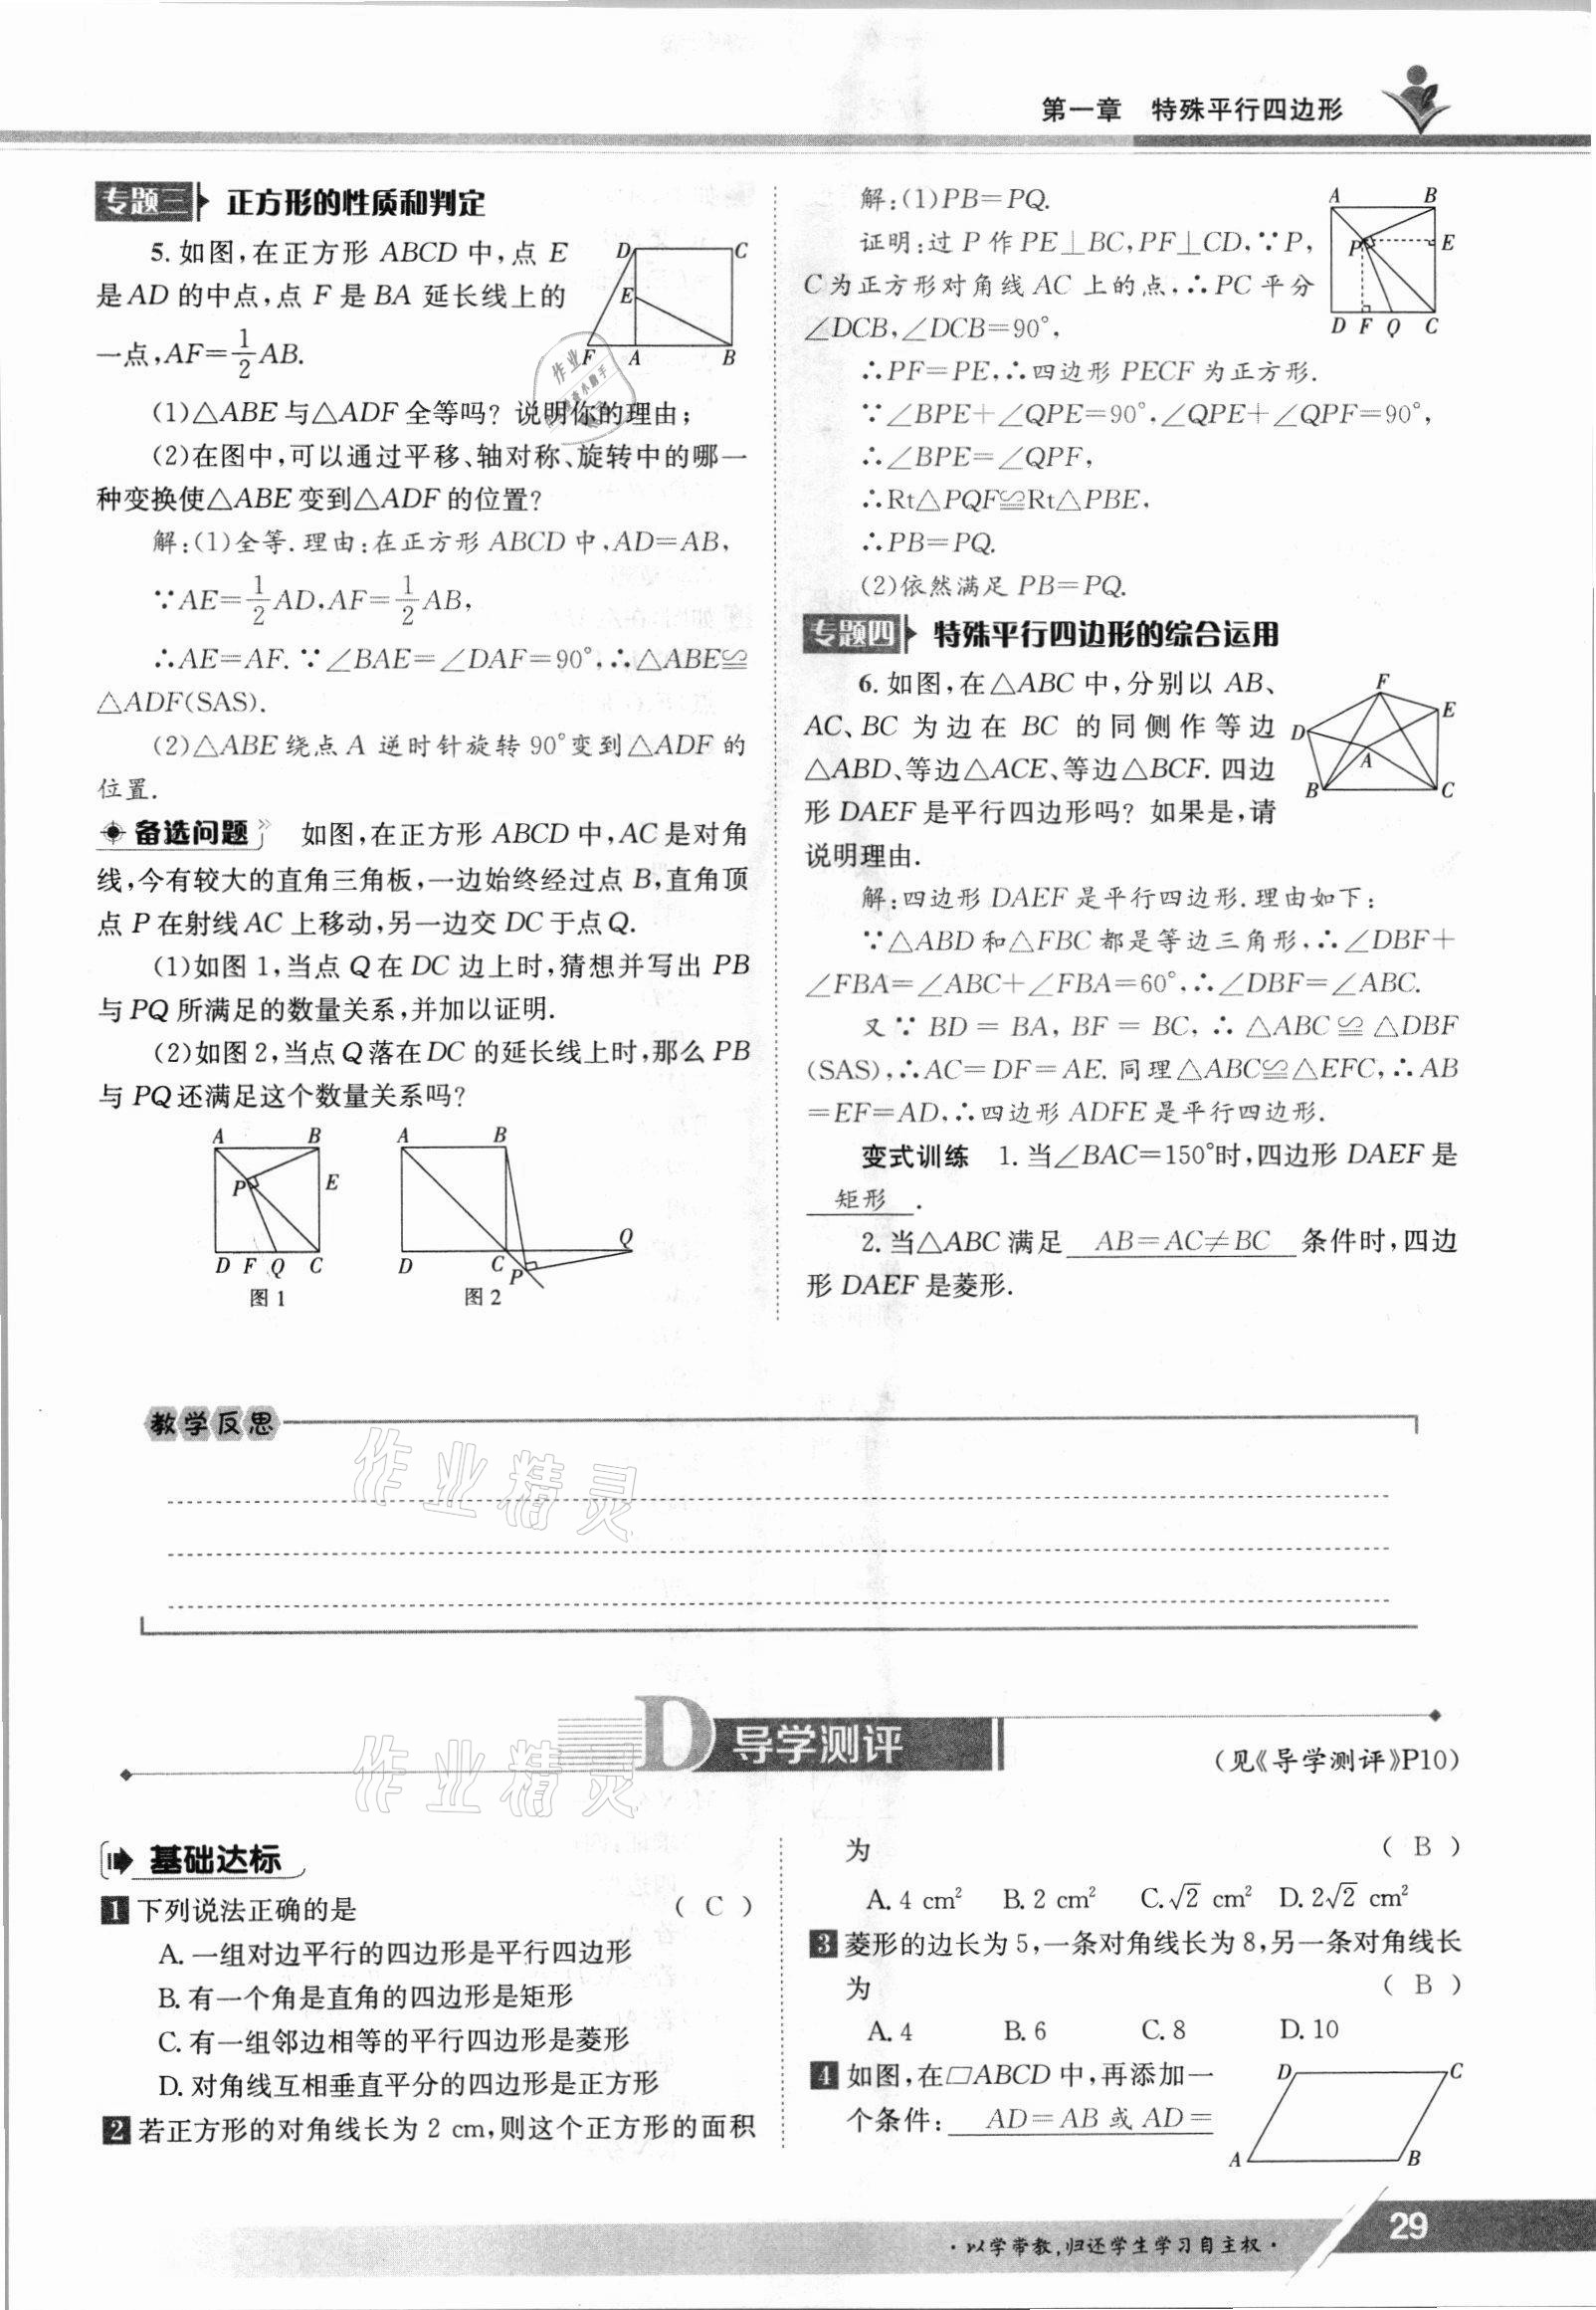 第一章 特殊平行四边形
专题三 正方形的性质和判定
5.如图,在正方形 ABCD 中,点 E
是AD 的中点,点 F 是 BA 延长线上的
一点,AF=1/2AB.
D C
E
F A B
(1)△ABE 与△ADF 全等吗? 说明你的理由;
(2)在图中,可以通过平移、轴对称、旋转中的哪一
种变换使△ABE 变到△ADF 的位置?
解:(1)全等.理由:在正方形 ABCD 中,AD=AB,
∵AE=1/2AD,AF=1/2AB,
∴AE=AF.∵∠BAE=∠DAF=90°,∴△ABE≌
△ADF(SAS).
(2)△ABE 绕点 A 逆时针旋转 90°变到△ADF 的
位置.
备选问题 如图,在正方形 ABCD 中,AC 是对角
线,今有较大的直角三角板,一边始终经过点 B,直角顶
点 P 在射线 AC 上移动,另一边交 DC 于点 Q.
(1)如图 1,当点 Q 在 DC 边上时,猜想并写出 PB
与 PQ 所满足的数量关系,并加以证明.
(2)如图 2,当点 Q 落在 DC 的延长线上时,那么 PB
与 PQ 还满足这个数量关系吗?
A B A B
P E
Q
D F Q C D C P
图 1 图 2
解:(1)PB=PQ.
证明:过 P 作 PE⊥BC,PF⊥CD,∵P,
C 为正方形对角线 AC 上的点,∴PC 平分
∠DCB,∠DCB=90°,
A B
P E
D F Q C
∴PF=PE,∴四边形 PECF 为正方形.
∵∠BPE+∠QPE=90°,∠QPE+∠QPF=90°,
∴∠BPE=∠QPF,
∴Rt△PQF≌Rt△PBE,
∴PB=PQ.
(2)依然满足 PB=PQ.
专题四 特殊平行四边形的综合运用
6.如图,在△ABC 中,分别以 AB、
AC、BC 为边在 BC 的同侧作等边
△ABD、等边△ACE、等边△BCF. 四边
形 DAEF 是平行四边形吗? 如果是,请
说明理由.
F
E
D
A
B C
解:四边形 DAEF 是平行四边形.理由如下:
∵△ABD 和△FBC 都是等边三角形,∴∠DBF+
∠FBA=∠ABC+∠FBA=60°,∴∠DBF=∠ABC.
又∵ BD = BA, BF = BC, ∴ △ABC ≌ △DBF
(SAS),∴AC=DF=AE. 同理△ABC≌△EFC,∴AB
=EF=AD,∴四边形 ADFE 是平行四边形.
变式训练 1.当∠BAC=150°时,四边形 DAEF 是
矩形.
2.当△ABC 满足 AB=AC≠BC 条件时,四边
形 DAEF 是菱形.
教学反思
作业精灵
D 导学测评
(见《导学测评》P10)
作业精灵
基础达标
1 下列说法正确的是 ( C )
A. 一组对边平行的四边形是平行四边形
B. 有一个角是直角的四边形是矩形
C. 有一组邻边相等的平行四边形是菱形
D. 对角线互相垂直平分的四边形是正方形
2 若正方形的对角线长为 2 cm,则这个正方形的面积
为 ( B )
A. 4 cm² B. 2 cm² C. √2 cm² D. 2√2 cm²
3 菱形的边长为 5,一条对角线长为 8,另一条对角线长
为 ( B )
A. 4 B. 6 C. 8 D. 10
4 如图,在▱ABCD 中,再添加一
个条件: AD=AB 或 AD=
D C
A B
·以学带教,归还学生学习自主权·
29